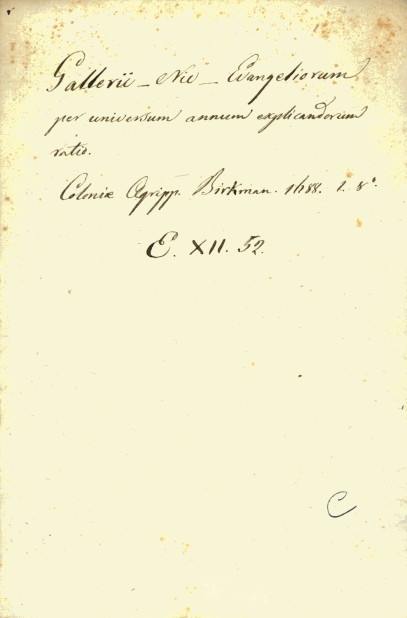 Gallerii - Nic - Evangeliorum
per universum annum explicandorum
ratio.
Coloniæ Agripp. Birkman. 1688. 1. 8°.
E. XII. 52.
C